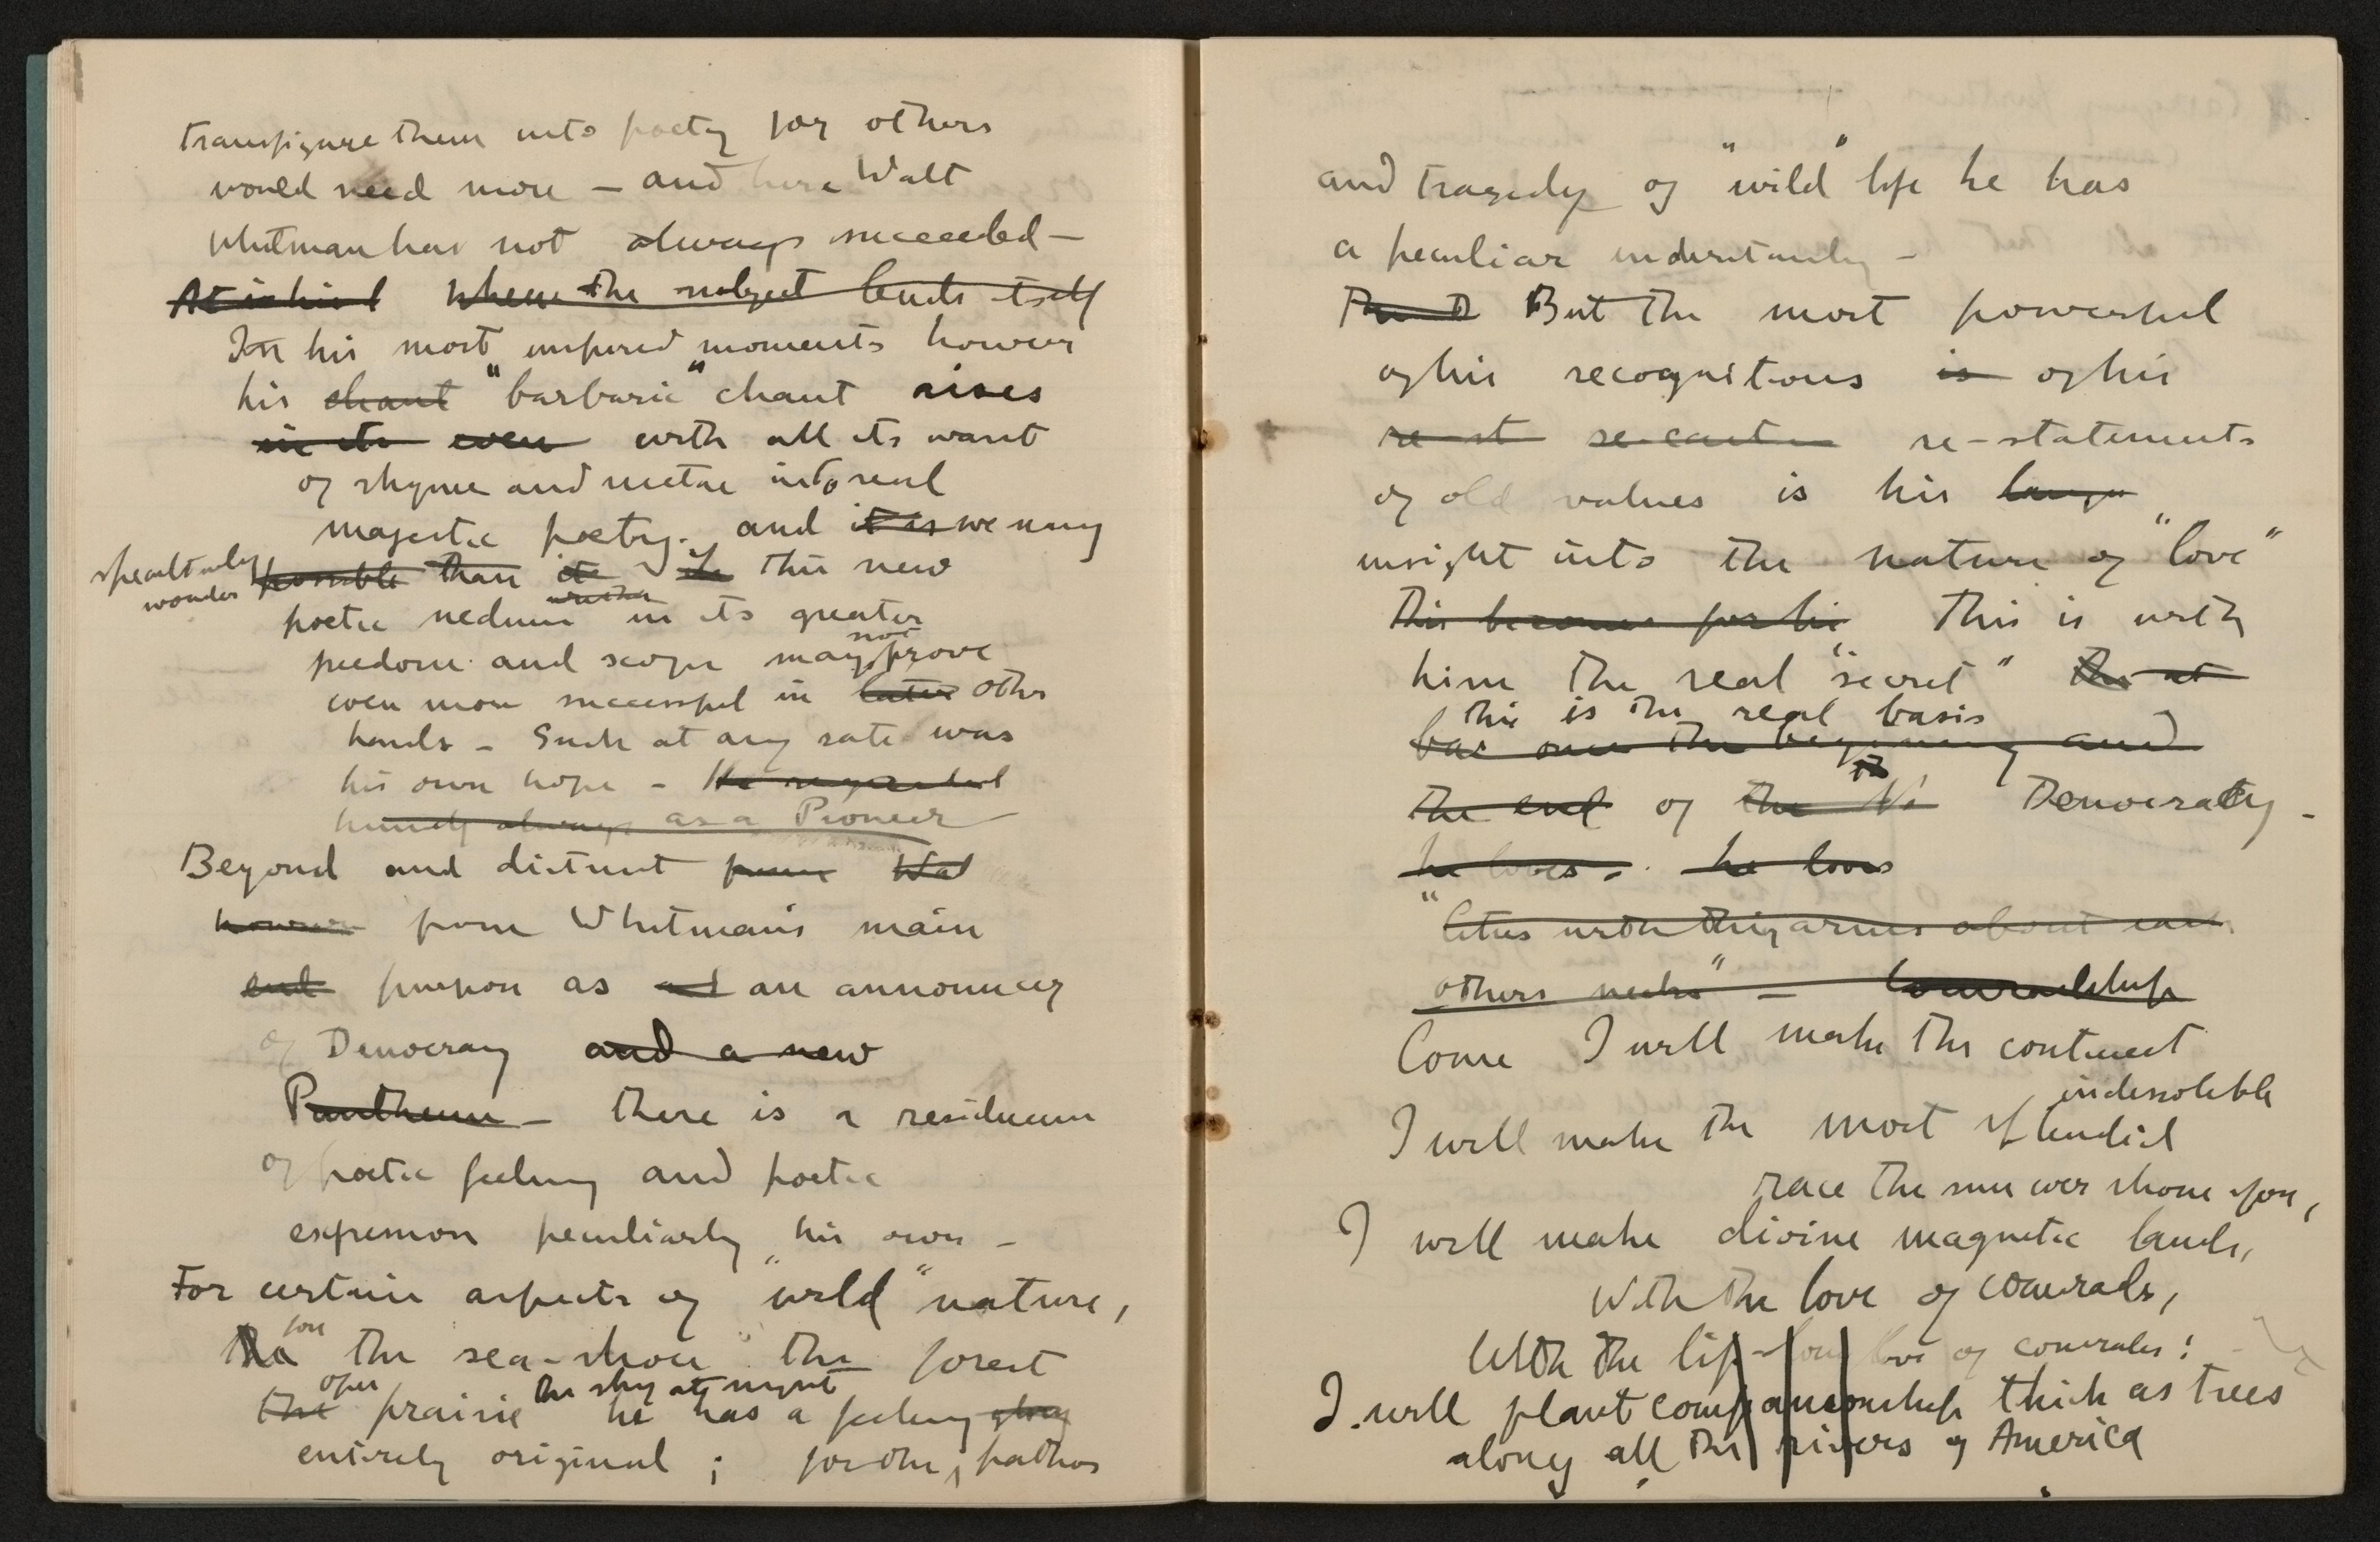 transfigure them into poetry for others
would need more – and here Walt
Whitman has not always succeeded –
where the subject lends itself
In his most inspired moments however
his chant "barbaric" chant rises
in its even with all its want
of rhyme and metre into real
majestic poetry. and it is we may
wonder possible than it if this new
poetic medium in its greater
freedom and scope may not prove
even more successful in later other
hands – Such at any rate was
his own hope – He regarded
himself always as a Pioneer
Beyond and distinct from Wal
however from Whitman's main
end purpose as an announcer
of Democracy and a new
Pantheism – there is a residuum
of poetic feeling and poetic
expression peculiarly his own –
For certain aspects of "wild" nature,
for the sea-shore the forest
the open prairie the sky at night he has a feeling
entirely original ; for the pathos
and tragedy of "wild" life he has
a peculiar understanding –
But the most powerful
of his recognitions is of his
re-st re-statements
of old values is his
insight into the nature of "love"
This becomes for hi This is with
him the real "secret"
this is the real basis
the beginning and
the end of the Democracy –
he loves. he loves
"let us with thy arms about each
others necks" – Comradeship
Come I will make the continent
indissoluble
I will make the most splendid
race the sun ever shone upon,
I will make divine magnetic lands,
With the love of comrades,
With the life-long love of comrades!
I will plant companionship thick as trees
along all the rivers of America